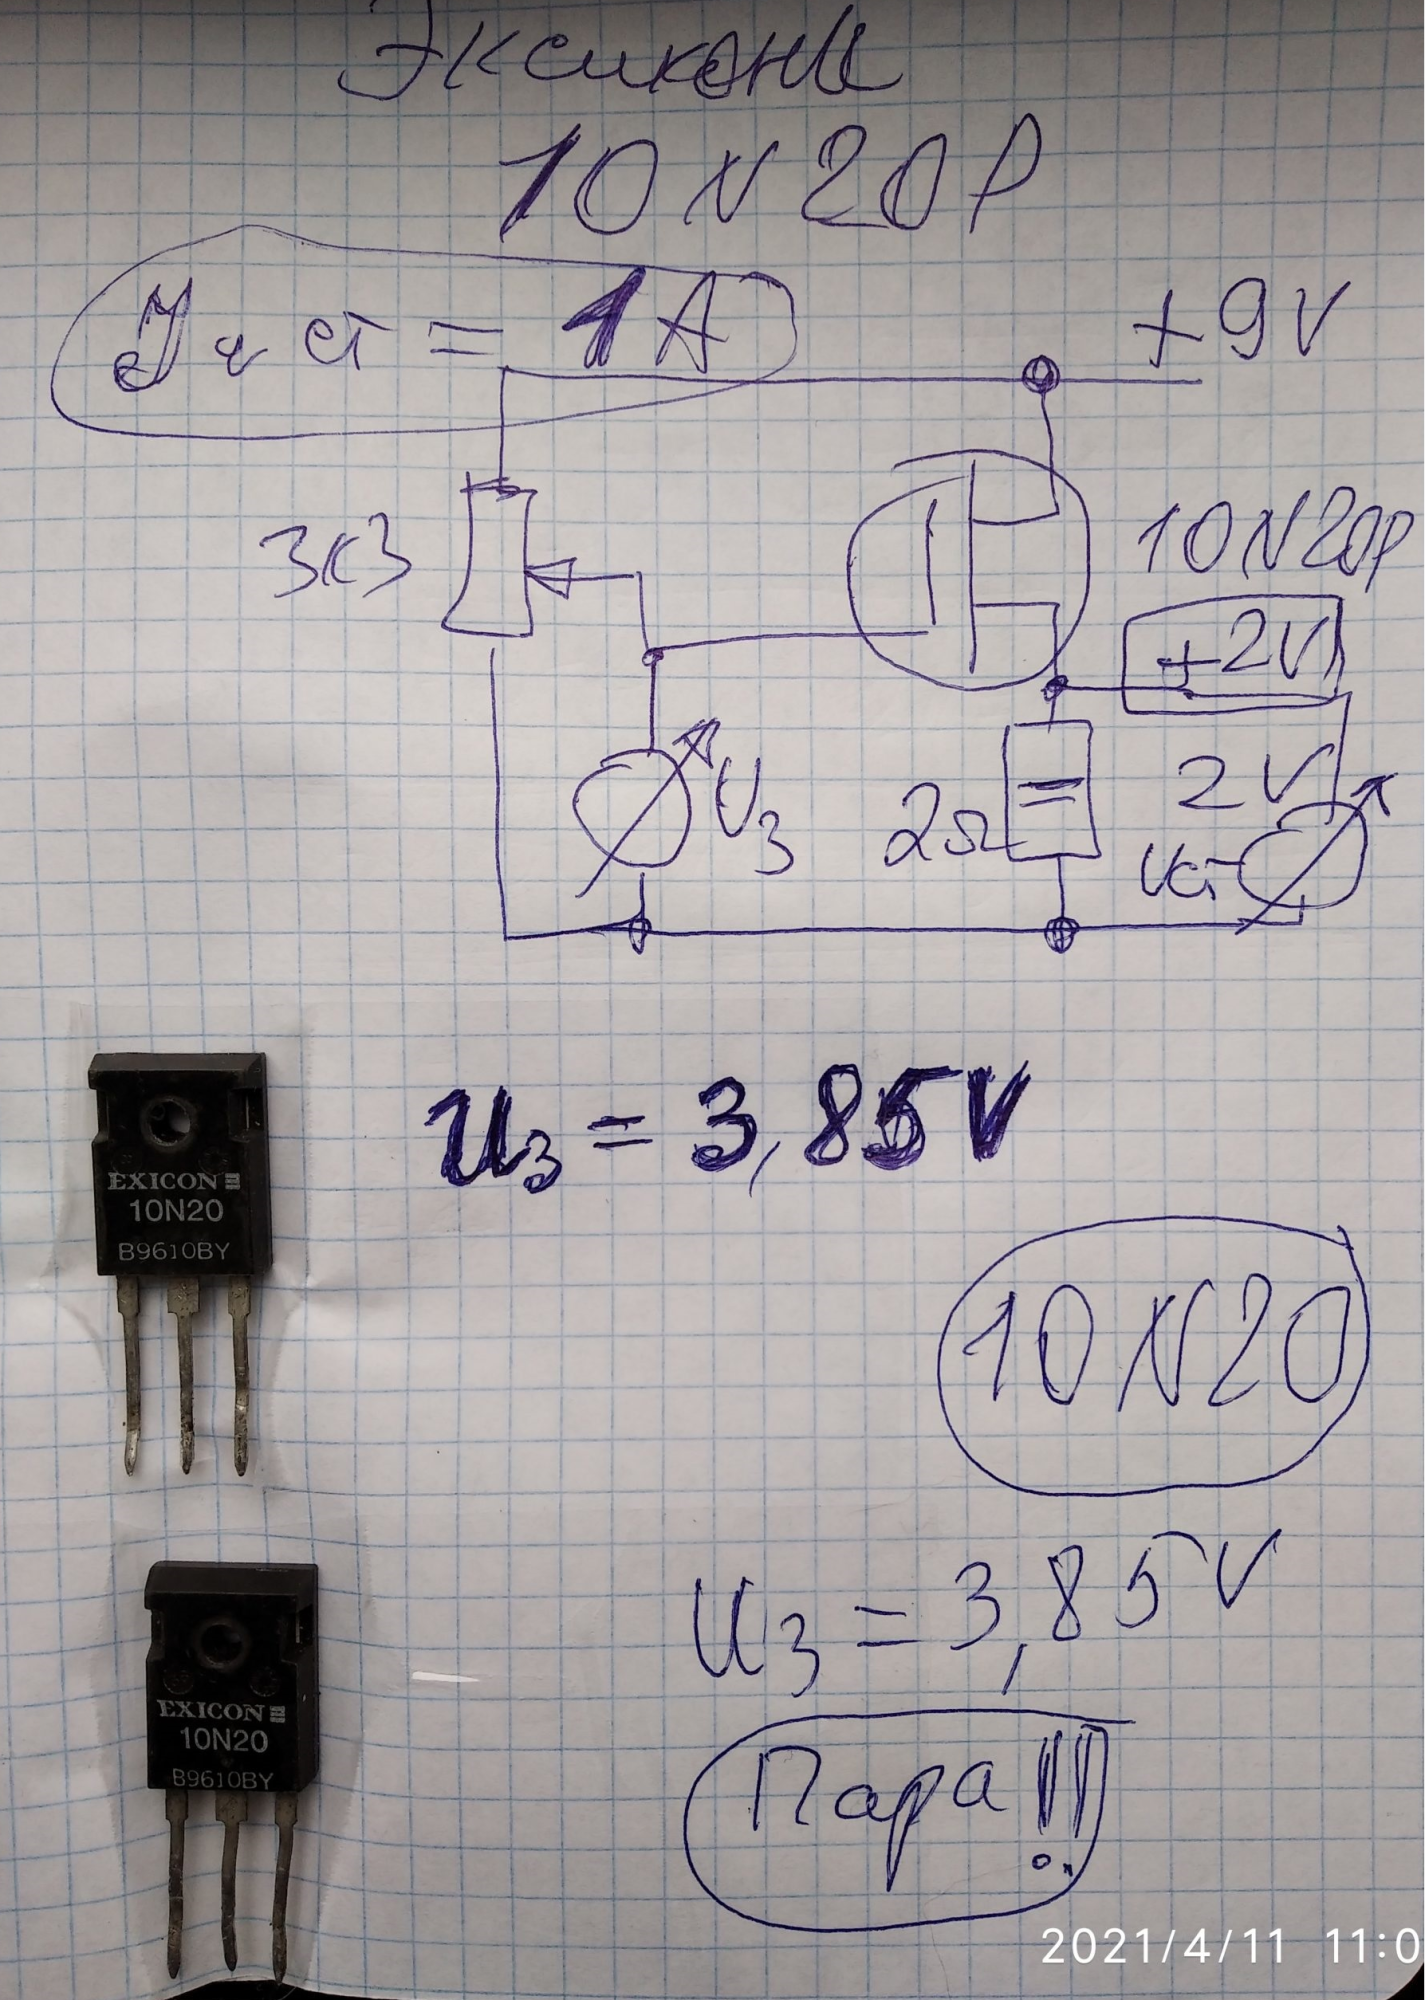 Эксиконы
10N20P
Jист = 1A
+9V
3к3
10N20P
+2V
U3
2Ω
2V
Uст
EXICON
10N20
B9610BY
U3 = 3,85V
10N20
EXICON
10N20
B9610BY
U3 = 3,85V
Пара!!
2021/4/11 11:0